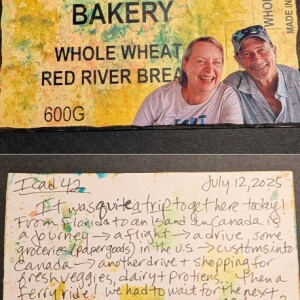 BAKERY
WHOLE WHEAT
RED RIVER BREA
600G
WHO
MADE IN
Icad 42
July 12, 2025
It was quite a trip together today!
From Florida to an Island in Canada is
a journey → a flight → a drive, some
groceries (paper goods) in the U.S → customs into
Canada → another drive + shopping for
fresh veggies, dairy + protiens... Then a
ferry ride! We had to wait for the next